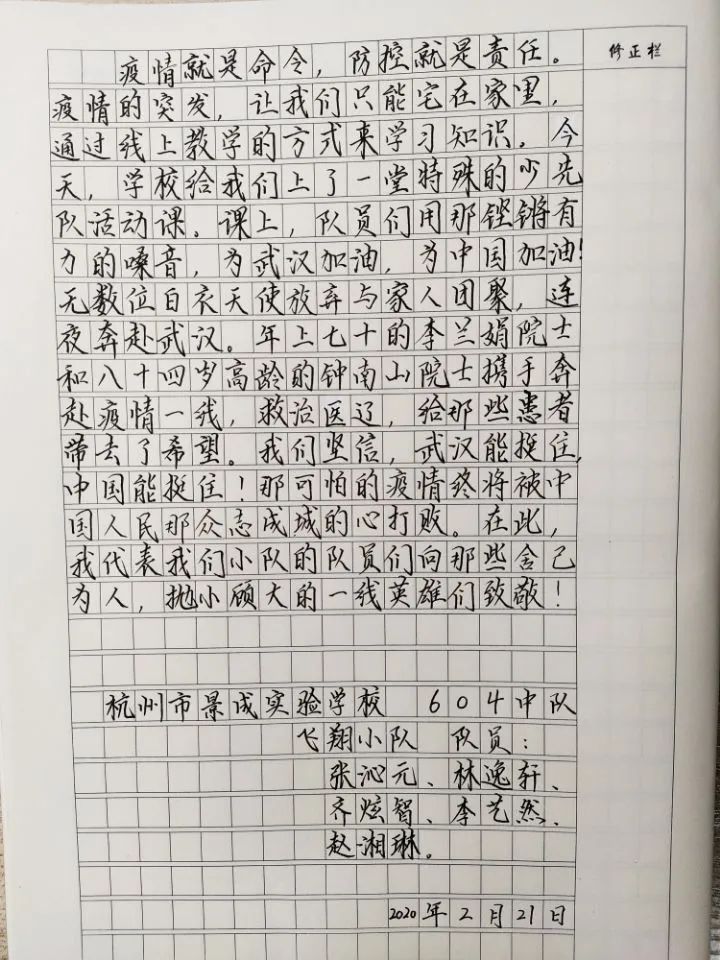 修正栏
疫情就是命令，防控就是责任。
疫情的突发，让我们只能宅在家里，
通过线上教学的方式来学习知识。今
天，学校给我们上了一堂特殊的少先
队活动课。课上，队员们用那铿锵有
力的嗓音，为武汉加油，为中国加油！
无数位白衣天使放弃与家人团聚，连
夜奔赴武汉。年上七十的李兰娟院士
和八十四岁高龄的钟南山院士携手奔
赴疫情一线，救治医辽，给那些患者
带去了希望。我们坚信，武汉能挺住，
中国能挺住！那可怕的疫情终将被中
国人民那众志成城的心打败。在此，
我代表我们小队的队员们向那些舍己
为人，抛小顾大的一线英雄们致敬！
杭州市景成实验学校 604中队
飞翔小队 队员：
张沁元、林逸轩、
齐炫智、李艺然、
赵湘琳。
2020年2月21日